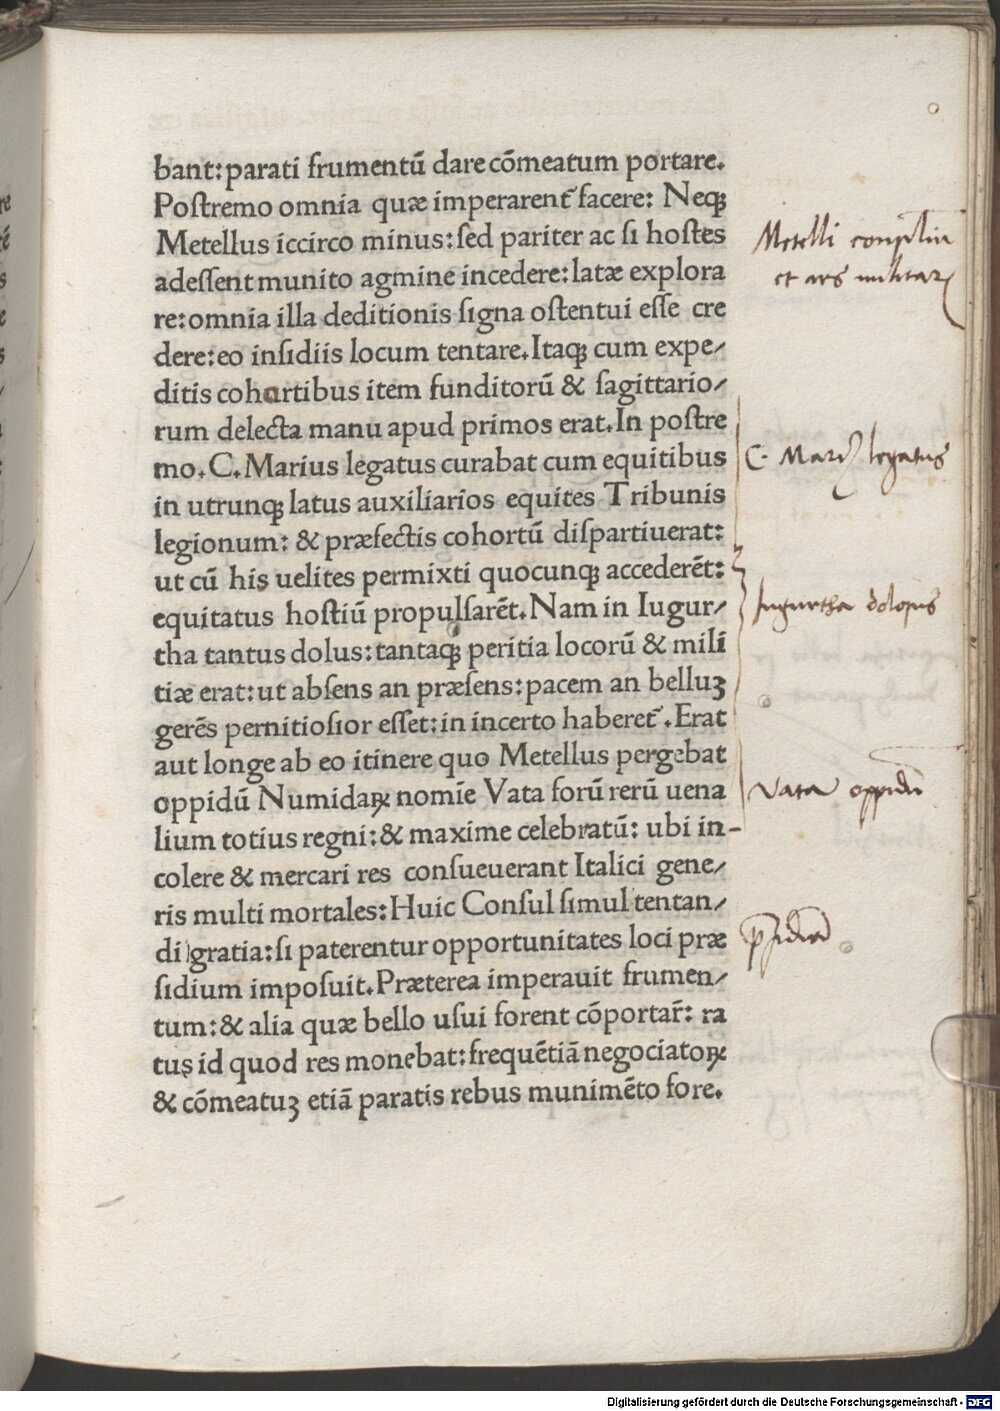 bant: parati frumentū dare cōmeatum portare.
Poſtremo omnia quæ imperarent̄ facere: Neqꝫ
Metellus iccirco minus: ſed pariter ac ſi hoſtes
adeſſent munito agmine incedere: latæ explora
re: omnia illa deditionis ſigna oſtentui eſſe cre
dere: eo inſidiis locum tentare. Itaqꝫ cum expe⸗
ditis cohortibus item funditorū & ſagittario⸗
rum delecta manu apud primos erat. In poſtre
mo. C. Marius legatus curabat cum equitibus
in utrunqꝫ latus auxiliarios equites Tribunis
legionum: & præfectis cohortū diſpartiuerat:
ut cū his uelites permixti quocunqꝫ accederēt:
equitatus hoſtiū propulſarēt. Nam in Iugur⸗
tha tantus dolus: tantaqꝫ peritia locorū & mili
tiæ erat: ut abſens an præſens: pacem an belluꝫ
gerēs pernitioſior eſſet: in incerto haberet̄. Erat
aut longe ab eo itinere quo Metellus pergebat
oppidū Numidaꝝ nomīe Vata forū rerū uena
lium totius regni: & maxime celebratū: ubi in-
colere & mercari res conſueuerant Italici gene⸗
ris multi mortales: Huic Conſul ſimul tentan⸗
di gratia: ſi paterentur opportunitates loci præ
ſidium impoſuit. Præterea imperauit frumen⸗
tum: & alia quæ bello uſui forent cōportar̄: ra
tus id quod res monebat: frequētiā negociatoꝝ
& cōmeatuꝫ etiā paratis rebus munimēto fore.
Metelli
et ars militar
C. Mariꝰ legatus
Jugurtha dolosus
Vata oppidū
Digitalisierung gefördert durch die Deutsche Forschungsgemeinschaft - DFG